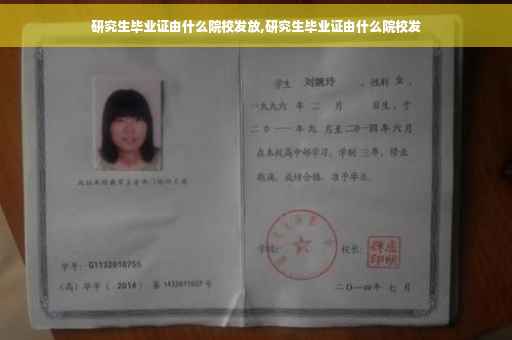 研究生毕业证由什么院校发放,研究生毕业证由什么院校发
学生 刘婉玲 ，性别 女 ，
一九九六 年 二 月 日生，于
二〇一一年九 月至二〇一四年六月
在本校高中部学习，学制 三年，修业
期满，成绩合格，准予毕业。
学号： G1132010755
学校：
校长：
（高）毕字（ 2014 ）第 1432011027 号
二〇一四年 七 月